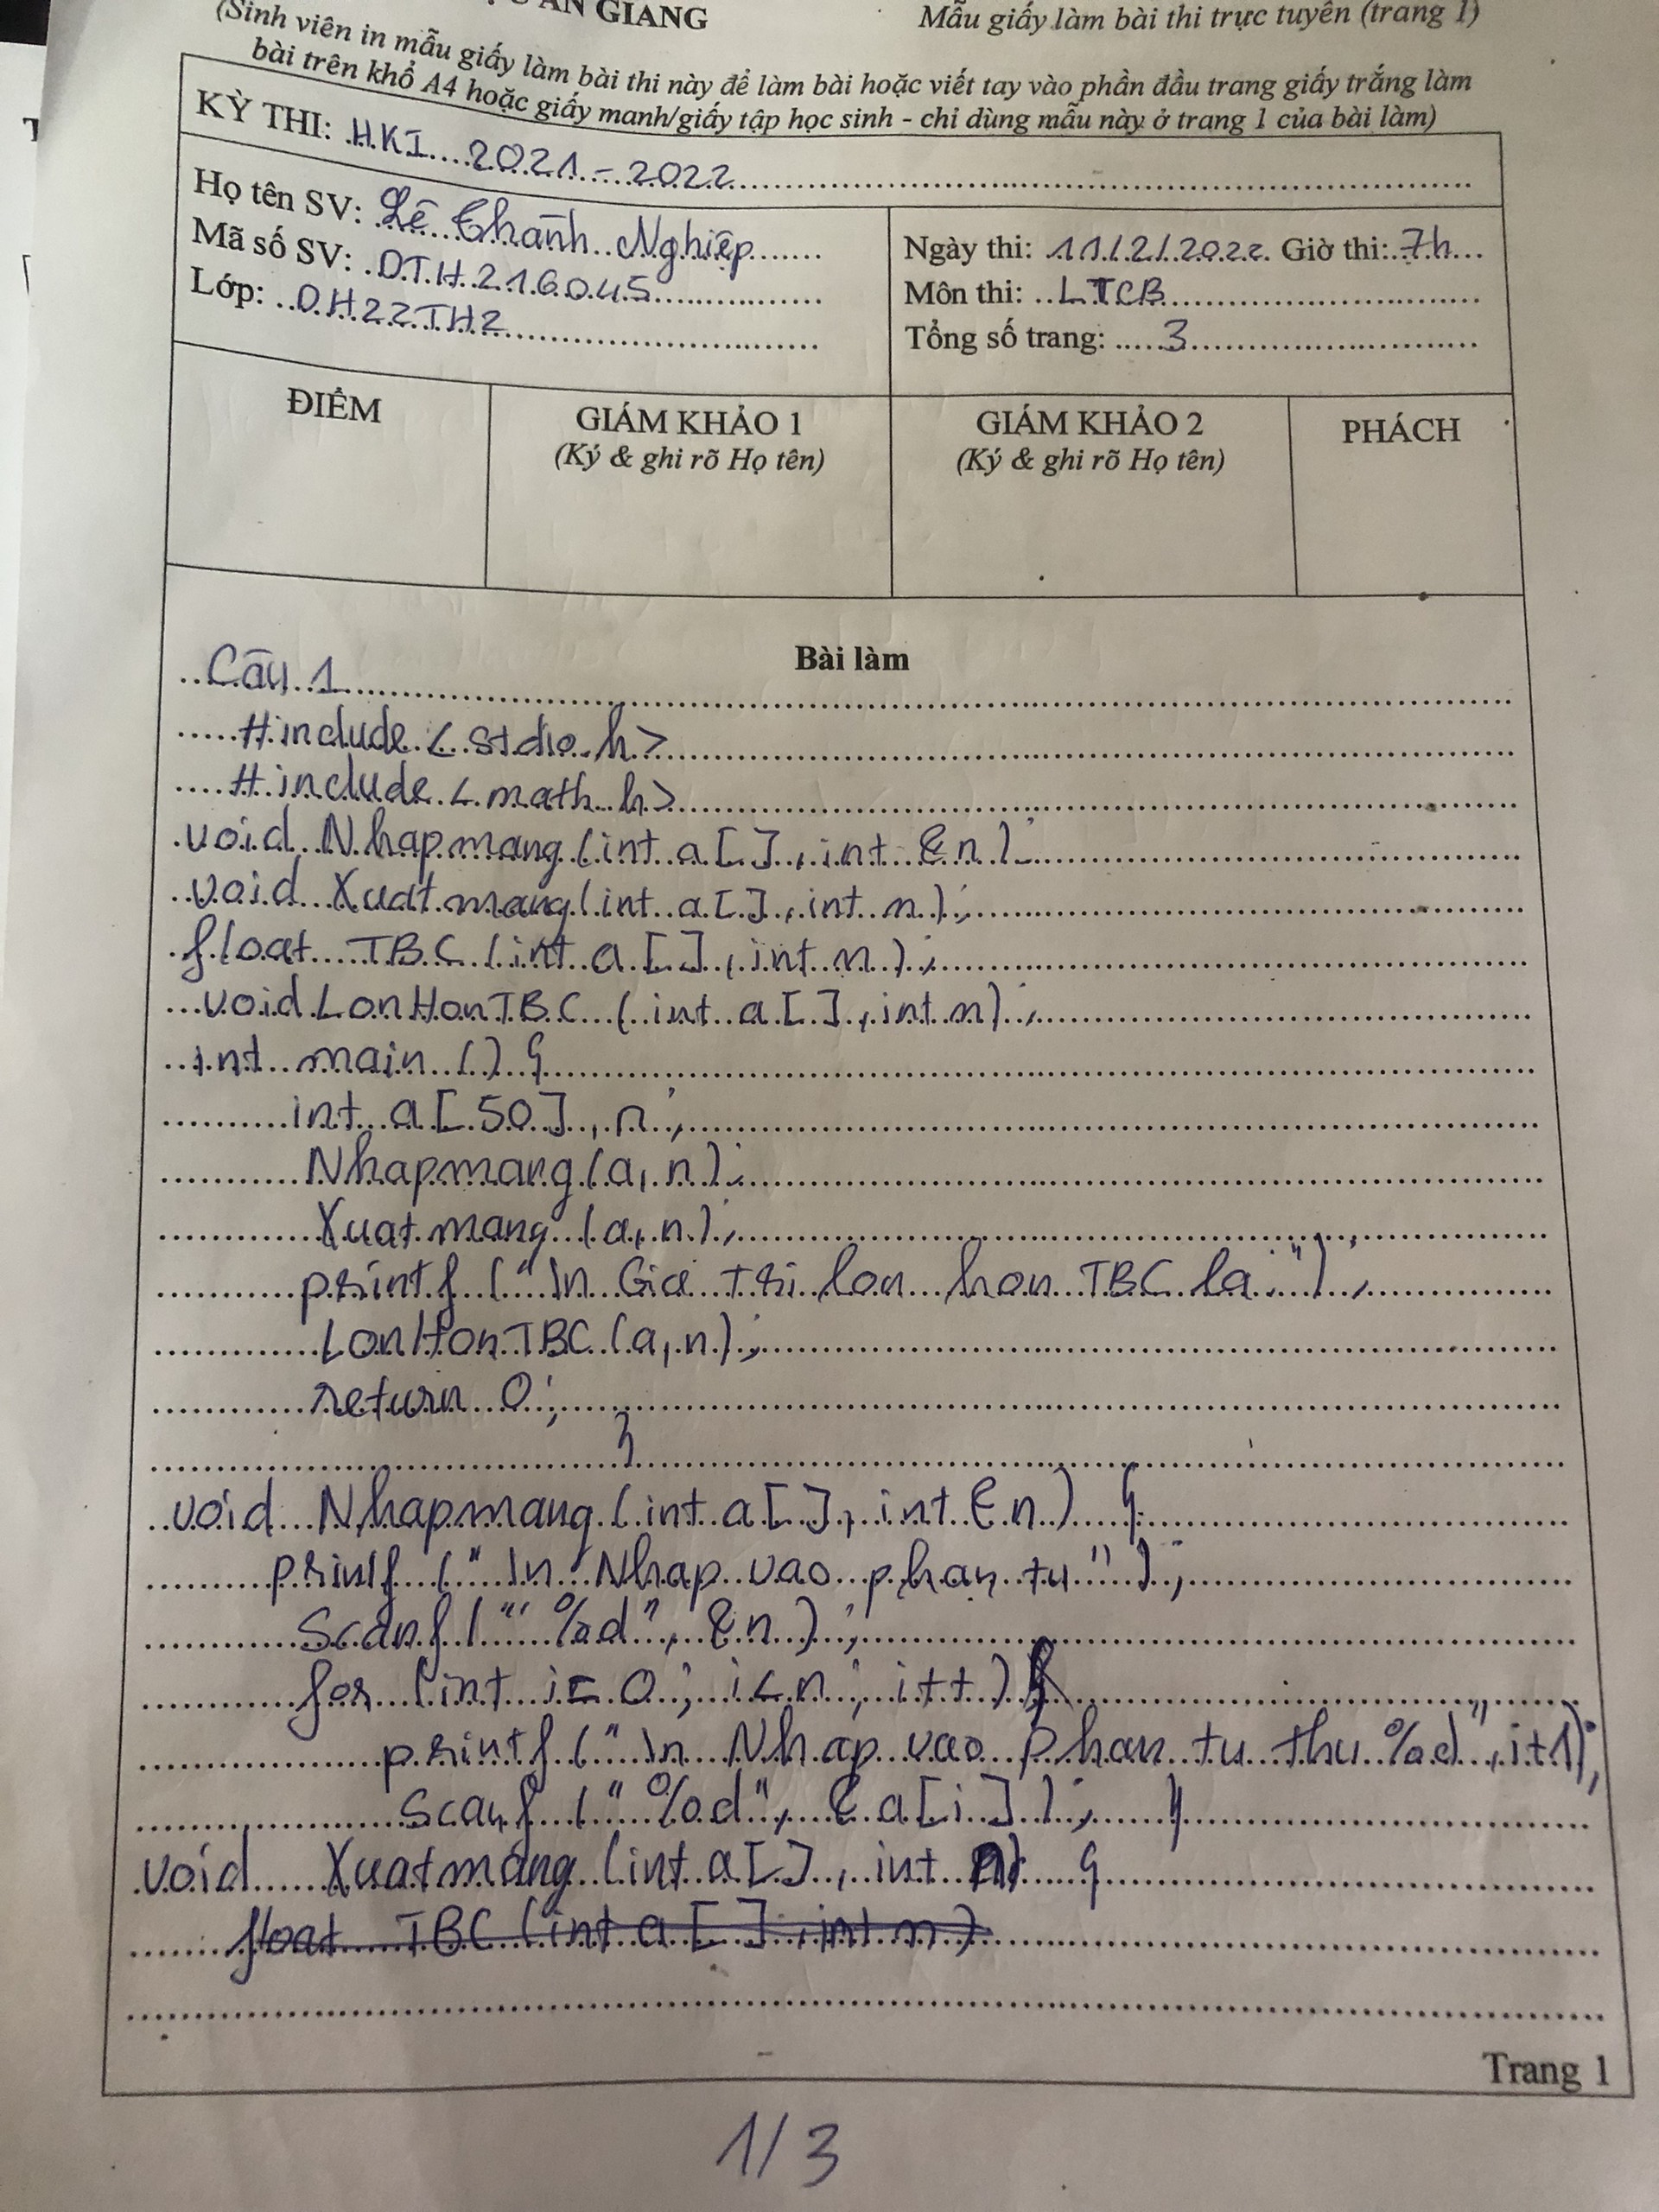 AN GIANG
Mẫu giấy làm bài thi trực tuyến (trang 1)
(Sinh viên in mẫu giấy làm bài thi này để làm bài hoặc viết tay vào phần đầu trang giấy trắng làm
bài trên khổ A4 hoặc giấy manh/giấy tập học sinh - chỉ dùng mẫu này ở trang 1 của bài làm)
KỲ THI: HKI 2021 - 2022
Họ tên SV: Lê Thành Nghiệp
Mã số SV: DTH216045
Lớp: DH22TH2
Ngày thi: 11/2/2022 Giờ thi: 7h
Môn thi: LTCB
Tổng số trang: 3
ĐIỂM
GIÁM KHẢO 1
(Ký & ghi rõ Họ tên)
GIÁM KHẢO 2
(Ký & ghi rõ Họ tên)
PHÁCH
Bài làm
Câu 1
#include < stdio.h>
#include < math.h>
void Nhapmang (int a[], int &n);
void Xuatmang (int a[], int n);
float TBC (int a[], int n);
void LonHonTBC (int a[], int n);
int main () {
int a[50], n;
Nhapmang (a, n);
Xuatmang (a, n);
printf ("\n Gia tri lon hon TBC la:");
LonHonTBC (a, n);
return 0;
}
void Nhapmang (int a[], int &n) {
printf ("\n Nhap vao phan tu");
Scanf ("%d", &n);
for (int i = 0; i < n; i++) {
printf ("\n Nhap vao phan tu thu %d", i+1);
Scanf ("%d", &a[i]); }
void Xuatmang (int a[], int n) {
float TBC (int a[], int n)
Trang 1
1/3